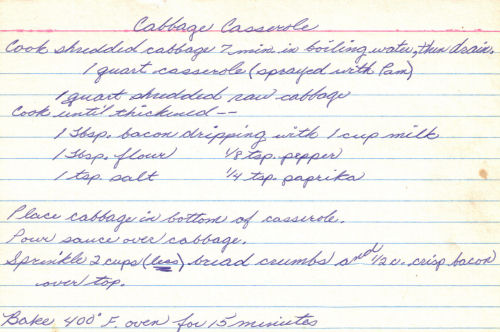 Cabbage Casserole
Cook shredded cabbage 7 min. in boiling water, then drain.
1 quart casserole (sprayed with Pam)
1 quart shredded raw cabbage
Cook until thickened --
1 Tbsp. bacon dripping with 1 cup milk
1 Tbsp. flour 1/8 tsp. pepper
1 tsp. salt 1/4 tsp. paprika
Place cabbage in bottom of casserole.
Pour sauce over cabbage.
Sprinkle 2 cups (less) bread crumbs and 1/2 c. crisp bacon
over top.
Bake 400° F. oven for 15 minutes